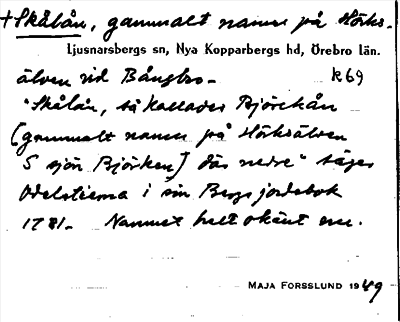 +Skålån, gammalt namn på Hörks-
Ljusnarsbergs sn, Nya Kopparbergs hd, Örebro län.
älven vid Bångbro- k69
"Skålån, så kallades Björckån
[gammalt namn på Hörksälven
S sjön Björken] där nedre" säges
Odelstierna i sin Bergsjordebok
1781. Namnet helt okänt nu.
MAJA FORSSLUND 1949